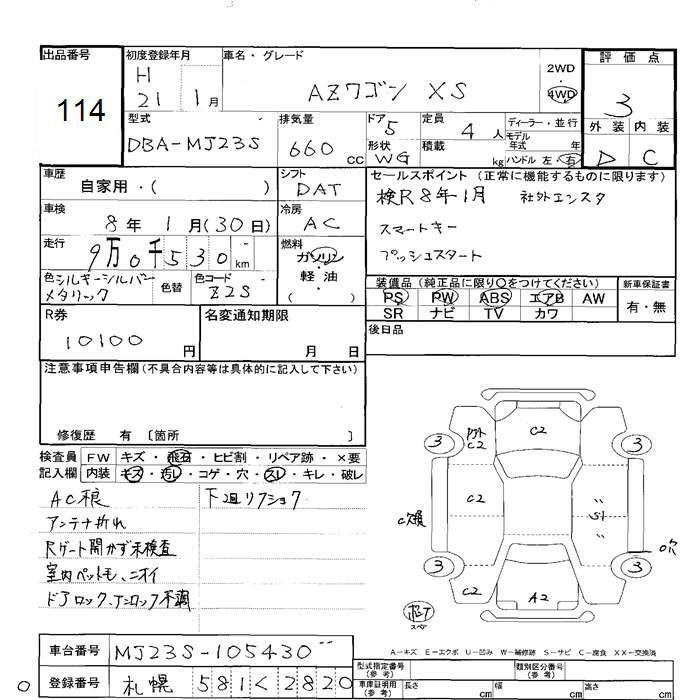 出品番号
114
初度登録年月
H
21 1月
車名・グレード
AZワゴン XS
2WD
・
4WD
評価点
3
外装 内装
D C
型式
DBA-MJ23S
排気量
660 cc
ドア 5
形状 WG
定員
4 人
積載
kg
ディーラー・並行
モデル年式 年
ハンドル 左・右
車歴
自家用・( )
シフト
DAT
セールスポイント (正常に機能するものに限ります)
検R8年1月 社外エンスタ
スマートキー
プッシュスタート
車検
8年1月(30日)
冷房
AC
走行
9万0千530km
燃料
ガソリン
・
軽・油
( )
色 シルキーシルバー
メタリック
色替
色コード
Z2S
装備品 (純正品に限り○をつけてください)
PS PW ABS エアB AW
SR ナビ TV カワ
新車保証書
有・無
R券
10100 円
名変通知期限
月 日
後日品
注意事項申告欄(不具合内容等は具体的に記入して下さい)
修復歴 有 〔箇所 〕
検査員記入欄
FW キズ・飛石・ヒビ割・リペア跡・×要
内装 キズ・汚レ・コゲ・穴・スレ・キレ・破レ
AC根
下廻リフショク
アンテナ折れ
Rゲート開かず未検査
室内ペット毛、ニオイ
ドアロック、アンロック不調
C2
C2
3
3
C2
S1
3
3
C2
A2
C欠損
穴
スペア
A-キズ E-エクボ U-凹み W-補修跡 S-サビ C-腐食 XX-交換済
車台番号
MJ23S-105430
登録番号
札幌 581 く 2820
型式指定番号
(参考)
類別区分番号
(参考)
車庫証明用
(参考)
長さ cm
幅 cm
高さ cm